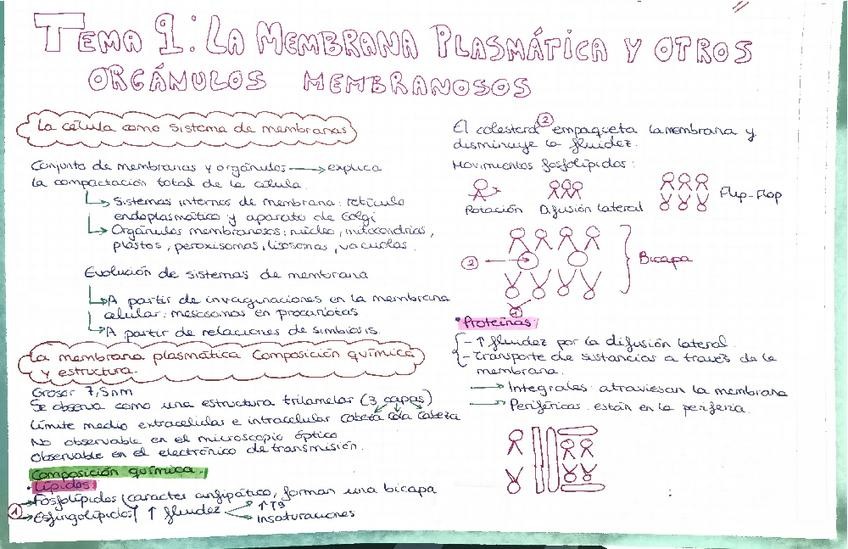 TEMA 1: LA MEMBRANA PLASMÁTICA Y OTROS
ORGÁNULOS MEMBRANOSOS
La célula como sistema de membranas
Conjunto de membranas y orgánulos → explica
la compactación total de la célula.
↳ Sistemas internos de membrana: retículo
endoplasmático y aparato de Golgi
↳ Orgánulos membranosos: núcleo, mitocondrias,
plastos, peroxisomas, lisosomas, vacuolas.
Evolución de sistemas de membrana
↳ A partir de invaginaciones en la membrana
celular: mesosomas en procariotas
↳ A partir de relaciones de simbiosis.
La membrana plasmática Composición química
y estructura.
Grosor 7,5nm
Se observa como una estructura trilamelar (3 capas)
Límite medio extracelular e intracelular Cabeza Cola Cabeza
No observable en el microscopio óptico
Observable en el electrónico de transmisión.
Composición química.
· Lípidos
→ Fosfolípidos (caracter anfipático, forman una bicapa
① → Esfingolípidos ↑ fluidez ↑ Tª
Insaturaciones
El colesterol ② empaqueta la membrana y
disminuye la fluidez.
Movimientos fosfolípidos:
Rotación Difusión lateral Flip-Flop
② → Bicapa
①
· Proteínas
- ↑ fluidez por la difusión lateral.
- Transporte de sustancias a través de la
membrana.
→ Integrales: atraviesan la membrana
→ Periféricas: están en la periferia.